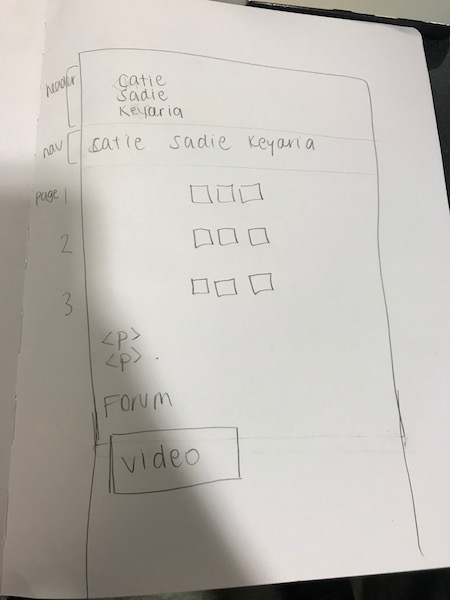 header
Catie
Sadie
Keyaria
nav
Catie Sadie Keyaria
page 1
2
3
<p>
<p>
Forum
video